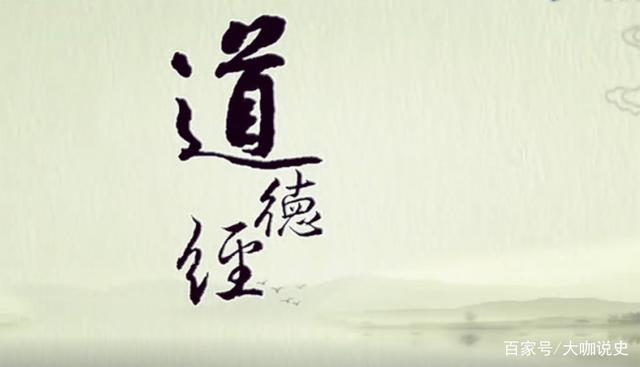 道
德
經
百家号/大咖说史